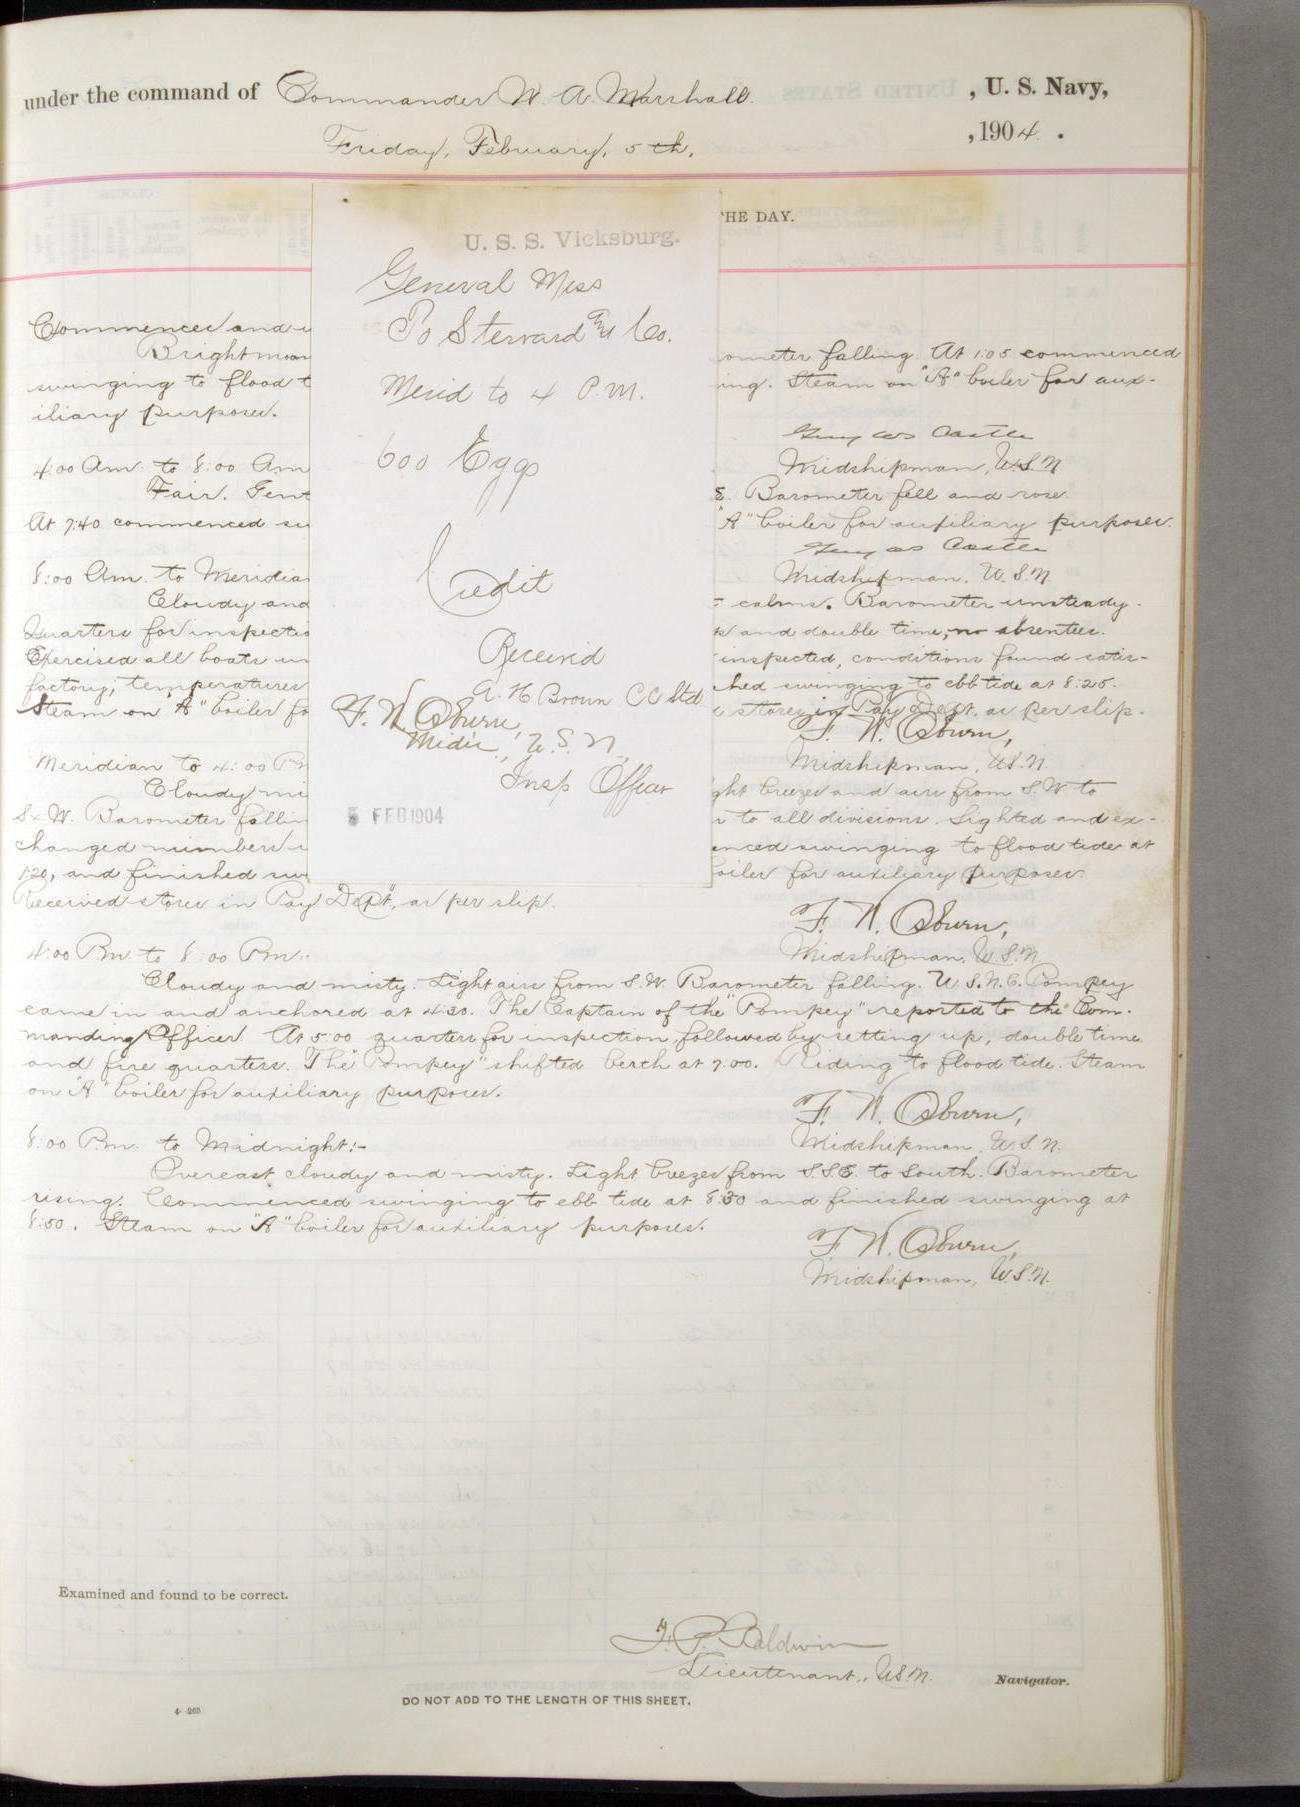 under the command of Commander W. A. Marshall. , U. S. Navy,
Friday, February, 5th, , 1904.
THE DAY.
U. S. S. Vicksburg.
General Mess
Po Steward Co.
Merid to 4 P.M.
600 Eggs
Credit
Received
A. H Brown CC Std
F. W. Osburn,
Mid'n., U. S. N.,
Insp Officer
5 FEB 1904
Commences and
Bright moon ometer falling. At 1:05 commenced
swinging to flood t ing. Steam on "A" boiler for aux-
iliary purposes.
Guy W S Castle
4:00 Am. to 8:00 Am Midshipman, U.S.N
Fair. Gent E. Barometer fell and rose.
At 7:40 commenced sw "A" boiler for auxiliary purposes.
Guy W S Castle
8:00 Am. to Meridian Midshipman. U.S.N.
Cloudy and calms. Barometer unsteady.
Quarters for inspectio and double time, no absentees.
Exercised all boats un inspected, conditions found satis-
factory; temperatures hed swinging to ebb tide at 8:25.
Steam on "A" boiler fo stores in Pay Dept. as per slip.
F. W. Osburn,
Meridian to 4:00 Pm Midshipman, U.S.N.
Cloudy mi ght breezes and airs from S.W to
S x W. Barometer fallin to all divisions. Lighted and ex-
changed numbers enced swinging to flood tide at
1:20, and finished sw oiler for auxiliary purposes.
Received stores in Pay "Dept", as per slip.
F. W. Osburn,
4:00 Pm to 8:00 Pm:- Midshipman, U.S.N.
Cloudy and misty. Light airs from S.W. Barometer falling. U.S.N.C. Pompey
came in and anchored at 4:30. The Captain of the "Pompey" reported to the Com-
manding Officer. At 5:00 quarters for inspection followed by setting up, double time
and fire quarters. The "Pompey" shifted berth at 7:00. Riding to flood tide. Steam
on "A" boiler for auxiliary purposes.
F. W. Osburn,
8:00 P.m. to Midnight:- Midshipman, U.S.N.
Overcast cloudy and misty. Light breezes from S.S.E. to South. Barometer
rising. Commenced swinging to ebb tide at 8:30 and finished swinging at
8:50. Steam on "A" boiler for auxiliary purposes.
F. W. Osburn,
Midshipman, U.S.N.
Examined and found to be correct.
F. P. Baldwin
Lieutenant, U.S.N. Navigator.
DO NOT ADD TO THE LENGTH OF THIS SHEET.